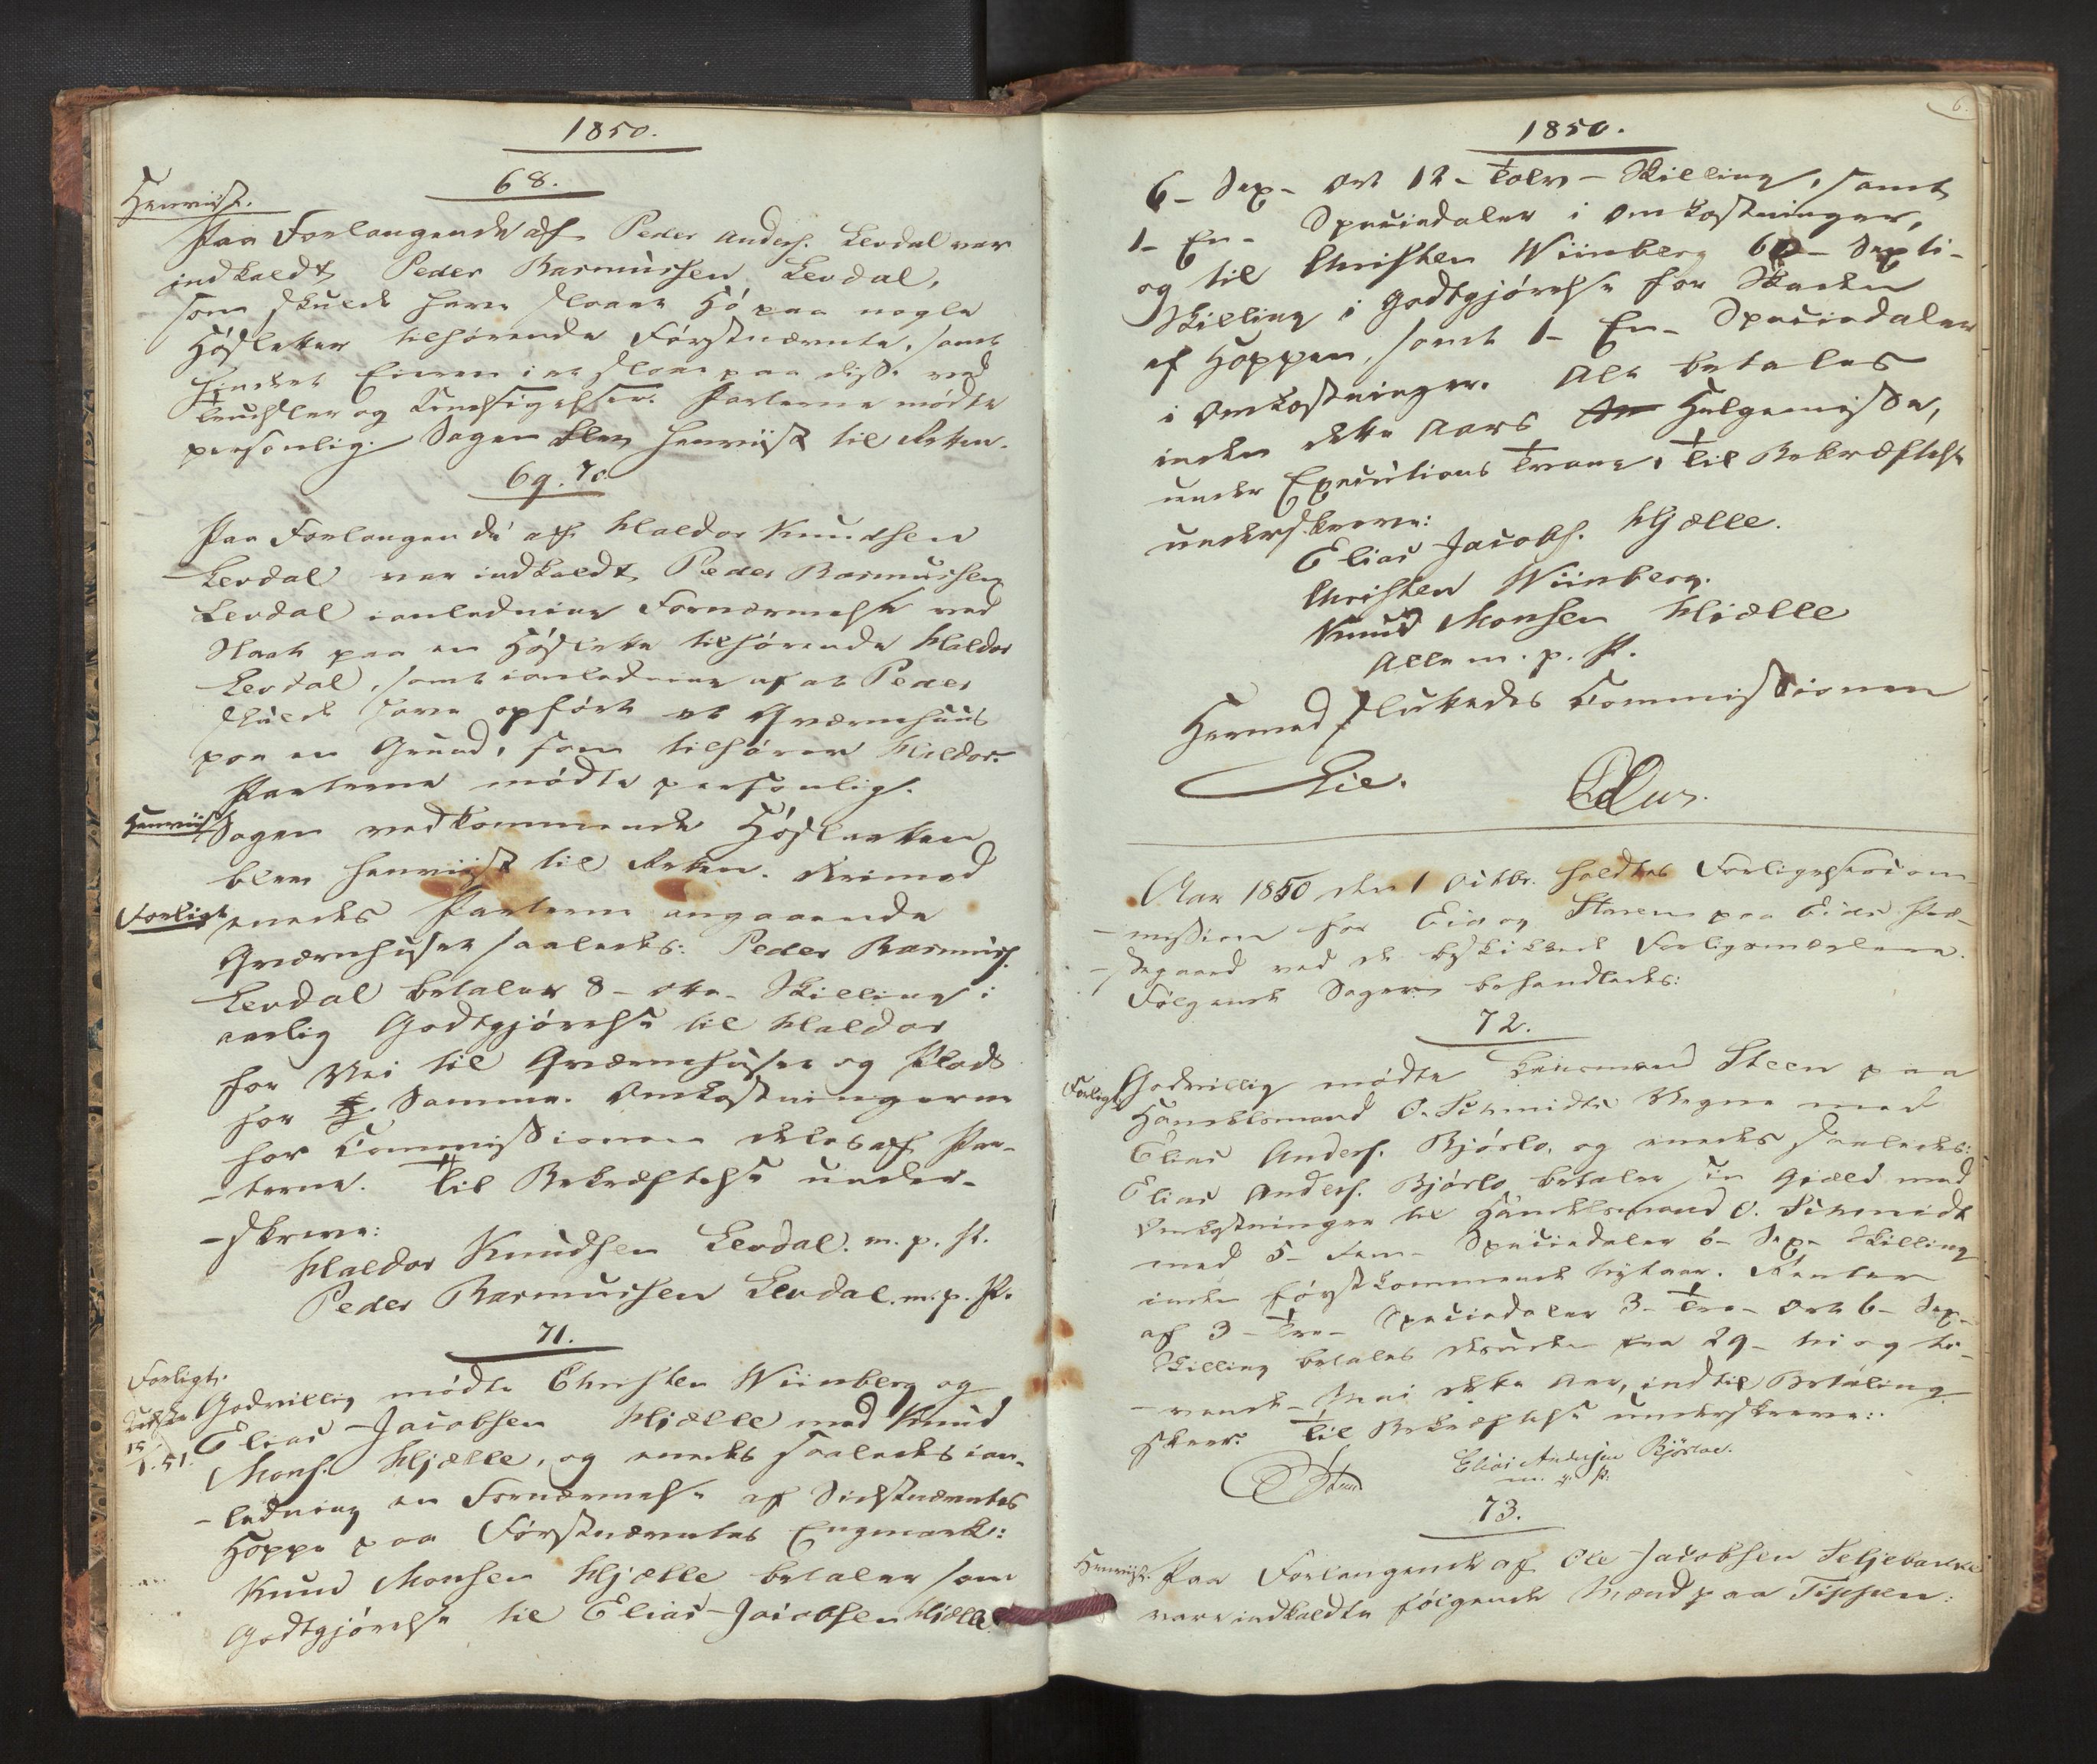 1850.
68.
Henviist.
Paa Forlangende af Peder Anders. Levdal var
indkaldt Peder Rasmussen Levdal,
som skulde have slaaet Hö paa nogle
Hösletter tilhörende Förstnævnte, samt
hindret Eieren i at slaae paa disse ved
Trudsler og Unævnelser. Parterne mödte
personlig. Sagen blev henviist til Retten.
69. 70.
Paa Forlangende af Haldor Knudsen
Levdal var indkaldt Peder Rasmussen
Levdal ianledning Fornærmelse ved
Slaat paa en Höslette tilhörende Haldor
Levdal, samt ianledning af at Peder
skulde have opfört et Qværnehuus
paa en Grund, som tilhörer Haldor.
Parterne mödte personlig.
Henviist Sagen vedkommende Höslætten
blev henviist til Retten. Derimod
Forligt enedes Parterne angaaende
Qværnhuset saaledes: Peder Rasmuss.
Levdal betaler 8 - otte - Skilling i
aarlig Godtgjörelse til Haldor
for Vei til Qværnehuset og Plads
for Samme. Omkostningerne
for Commissionen deles af Par-
-terne. Til Bekræftelse under-
-skreve:
Haldor Knudsen Levdal. m. p. P.
Peder Rasmussen Levdal. m. p. P.
71.
Forligt.
Udskr. 15/1. 51.
Godvillig mödte Christen Wiinberg og
Elias Jacobsen Hjælle med Knud
Mons. Hjælle, og enedes saaledes ian-
-ledning en Fornærmelse af Sidstnævntes
Hoppe paa Förstnævntes Engmark:
Knud Monsen Hjælle betaler som
Godtgjörelse til Elias Jacobsen Hjælle
6.
1850.
6 - Sex - Ort 12 - Tolv - Skilling, samt
1 - En - Speciedaler i Omkostninger,
og til Christen Wiinberg 60 - Sexti -
Skilling i Godtgjörelse for Skaden
af Hoppen, samt 1 - En - Speciedaler
i Omkostninger. Alt betales
inden dette Aars Helgemisse,
under Executions Tvang. Til Bekræftelse
underskreve:
Elias Jacobs. Hjælle.
Christen Wiinberg.
Knud Monsen Hiælle
Alle m. p. P.
Hermed sluttedes Commissionen
Lie.
Aar 1850 den 1 Octbr. holdtes Forligelsescom-
-mission for Eid og Starem paa Eids Præ-
-stegaard ved de beskikkede Forligsmæglere.
Fölgende Sager behandledes:
72.
Forligt Godvillig mödte Lensmand Steen paa
Handelsmand O. Schmidts Vegne med
Elias Anders. Bjórlo, og enedes saaledes:
Elias Anders. Bjórlo betaler sin Gjæld med
Omkostninger til Handelsmand O. Schmidt
med 5 - Fem - Speciedaler 6 - Sex - Skilling
inden förstkommende Nytaar. Renter
af 3 - Tre - Speciedaler 3 - Tre - Ort 6 - Sex -
Skilling betales desuden fra 29 - ni og ty-
-vende - Mai dette Aar, indtil Betaling
skeer. Til Bekræftelse underskreve:
Steen
Elias Andersen Bjórloe.
m. p. P.
73.
Henviist. Paa Forlangende af Ole Jacobsen Seljebakke
vare indkaldte fölgende Mænd paa